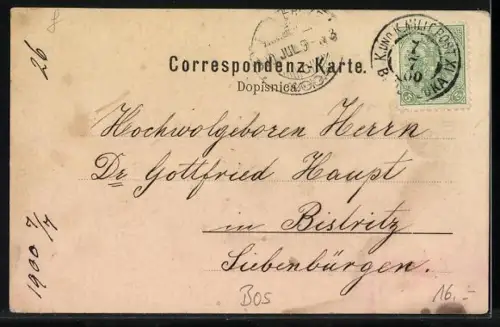 26
8
Correspondenz-Karte.
Dopisnica.
K. UND K. MILIT. POST XI
7
7
00
B
JUL
Hochwolgeboren Herrn
Dr Gottfried Haupt
in Bistritz
Siebenbürgen.
1900 7/7
BOS
16.-